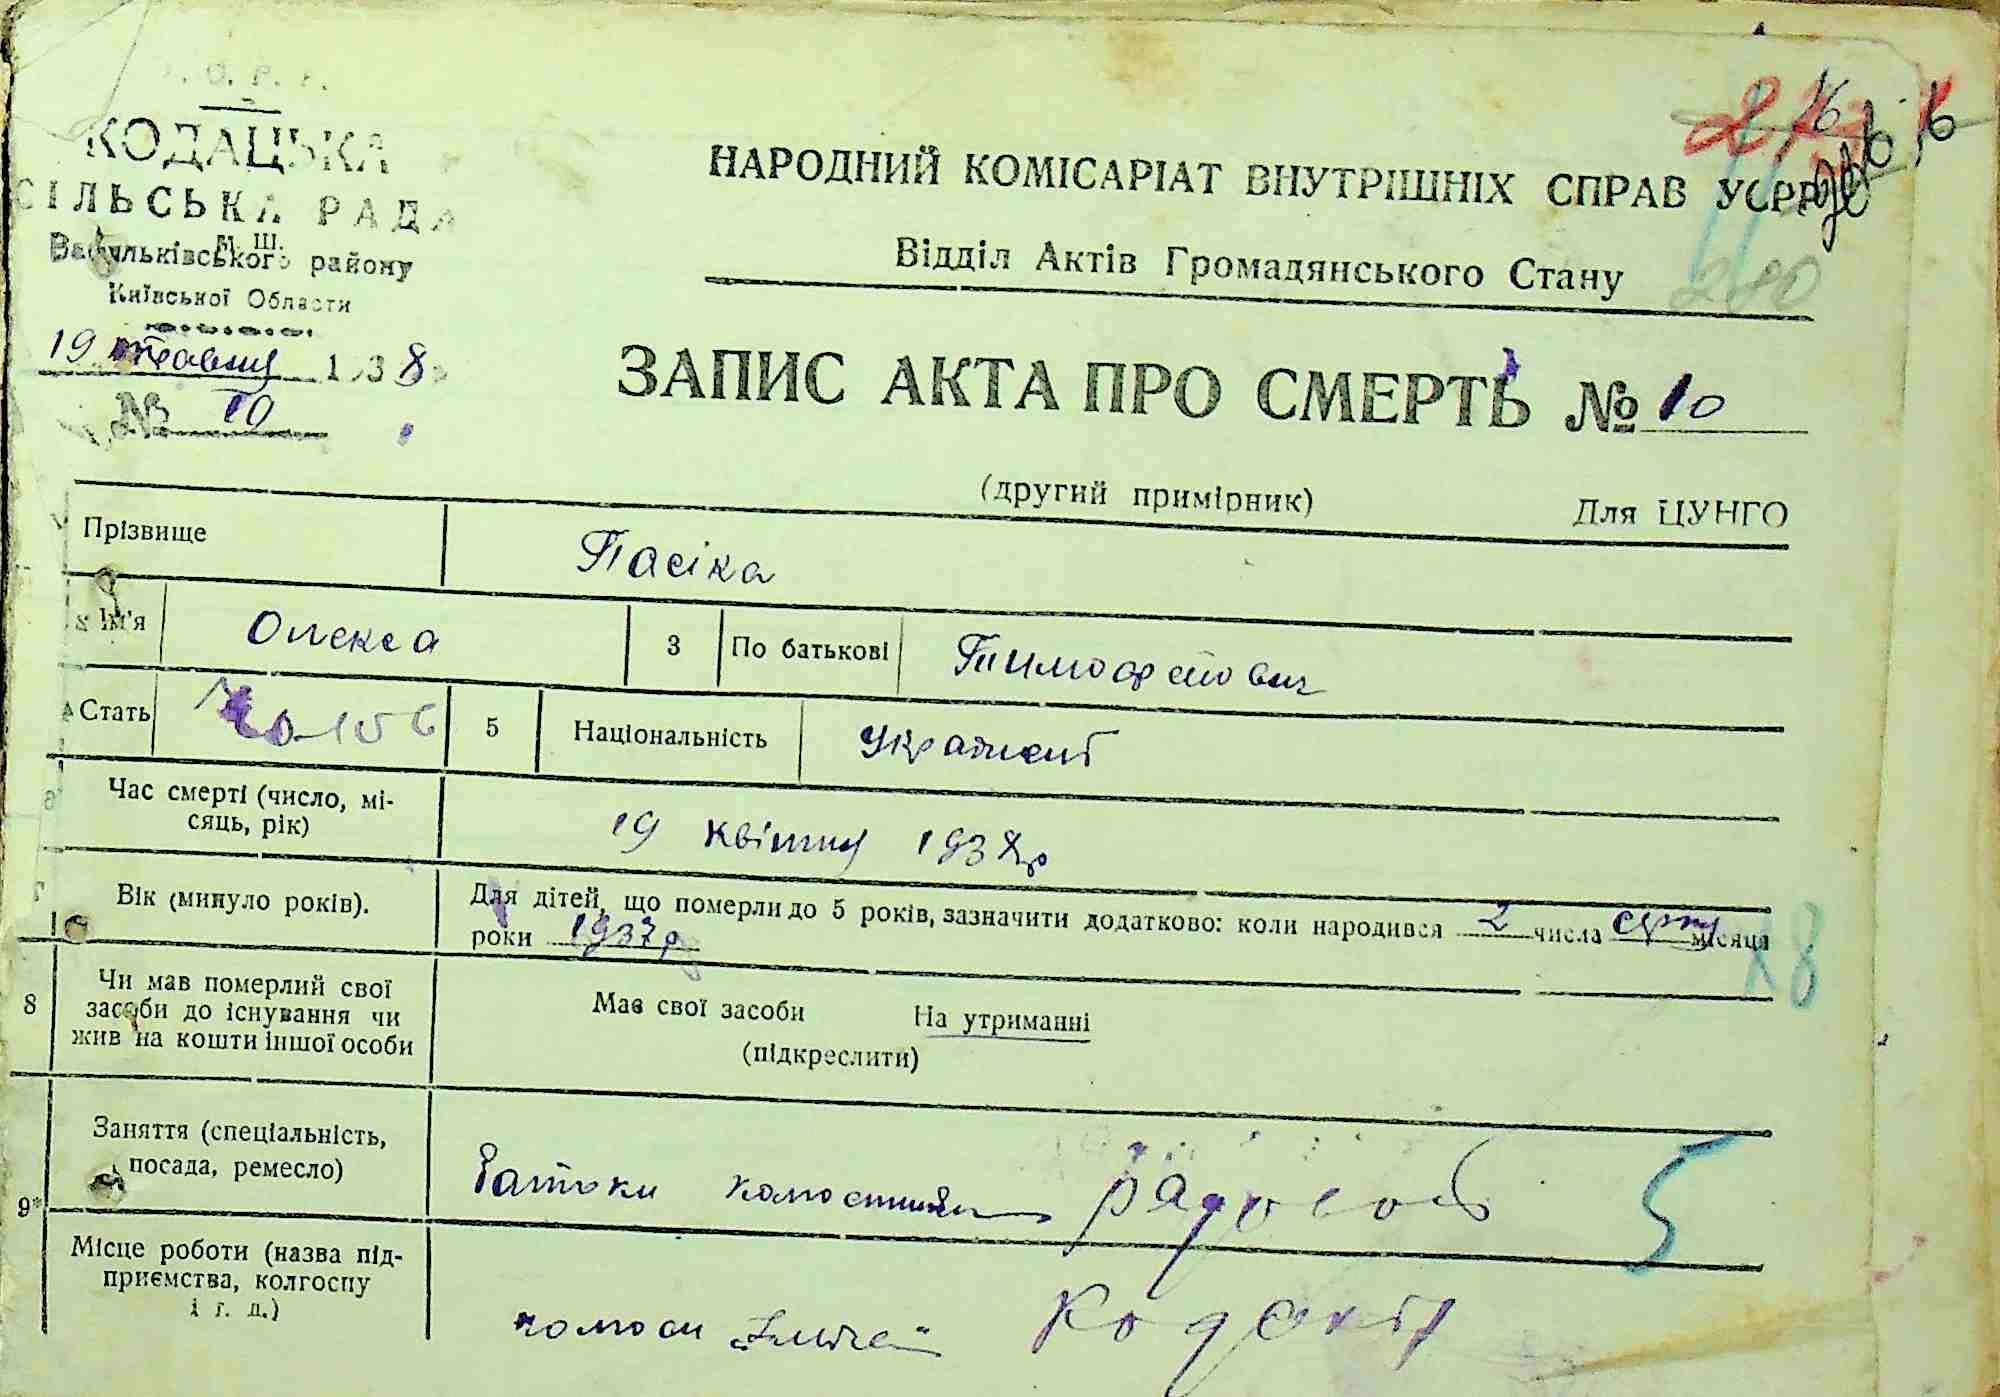 КОДАЦЬКА
СІЛЬСЬКА РАДА
М. Ш.
Васильківського району
Київської Области
19 травня 1938
№ 10
276
280
НАРОДНИЙ КОМІСАРІАТ ВНУТРІШНІХ СПРАВ УСРР
Відділ Актів Громадянського Стану
ЗАПИС АКТА ПРО СМЕРТЬ № 10
(другий примірник) Для ЦУНГО
Прізвище Пасіка
Ім'я Олекса 3 По батькові Тимофейович
Стать 5 Національність Українець
6 Час смерті (число, мі-
сяць, рік) 19 квітня 1938р
7 Вік (минуло років). Для дітей, що померли до 5 років, зазначити додатково: коли народився 2 числа серпня місяця
роки 1937р
8 Чи мав померлий свої
засоби до існування чи
жив на кошти іншої особи
Має свої засоби На утриманні
(підкреслити)
9* Заняття (спеціальність,
посада, ремесло) Батьки рядовой 5
Місце роботи (назва під-
приємства, колгоспу
і т. д.) колгосп Кодаки